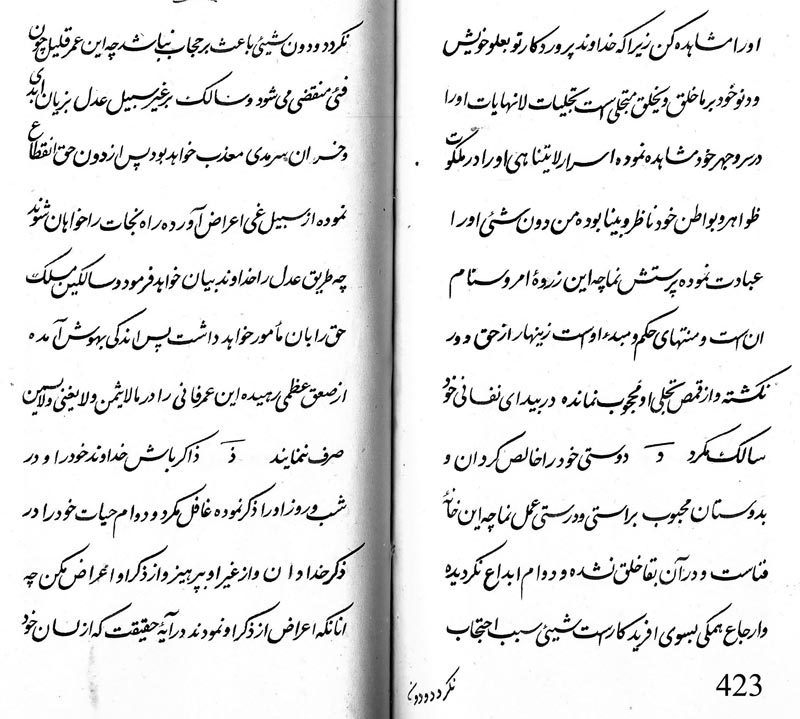 اورا مشاهده کن زیرا که خداوند پروردکار تو بعلو خویش
ودنو خود بر ما خلق و یخلق متجلی است بتجلیات لانهایات اورا
در سر و جهر خود مشاهده نموده اسرار لایتناهی اورا در ملکوت
ظواهر و بواطن خود ناظر و بینا بوده من دون شئی اورا
عبادت نموده پرستش نما چه این زروهٔ امر و سنام
ان است و منتهای حکم و مبدء اوست زینهار از حق دور
نکشته و از قمص تجلی او محجوب نمانده در بیدای نفسانی خود
سالک مکرد د دوستی خود را خالص کردان و
بدوستان محبوب براستی و درستی عمل نما چه این خانهٔ
فناست و در آن بقا خلق نشده و دوام ابداع نکردیده
و ارجاع همکی بسوی افریدکار است شیئی سبب احتجاب
نکردد ودون
423
نکردد ودون شیئی باعث بر حجاب نباشد چه این عمر قلیل چون
فئی منقضی می شود و سالک بر غیر سبیل عدل بزیان ابدی
و خسران سرمدی معذب خواهد بود پس از دون حق انقطاع
نموده از سبیل غی اعراض آورده راه نجات را خواهان شوند
چه طریق عدل را خداوند بیان خواهد فرمود و سالکین مسلک
حق را بان مأمور خواهد داشت پس اندکی بهوش آمده
از صعق عظمی رهیده این عمر فانی را در مالایثمن ولایغنی ولایسمن
صرف ننمایند ذ ذاکر باش خداوند خود را و در
شب و روز اورا ذکر نموده غافل مکرد و دوام حیات خود را در
ذکر خدا دان و از غیر او بپرهیز و از ذکر او اعراض مکن چه
انانکه اعراض از ذکر او نمودند در آیهٔ حقیقت که از لسان خود